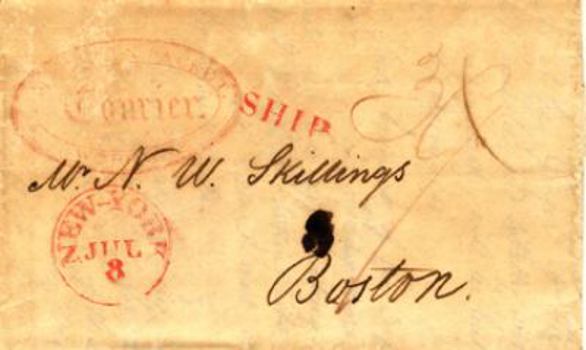 Courier.
SHIP
Mr. N. W. Skillings
NEW-YORK
JUL
8
Boston.